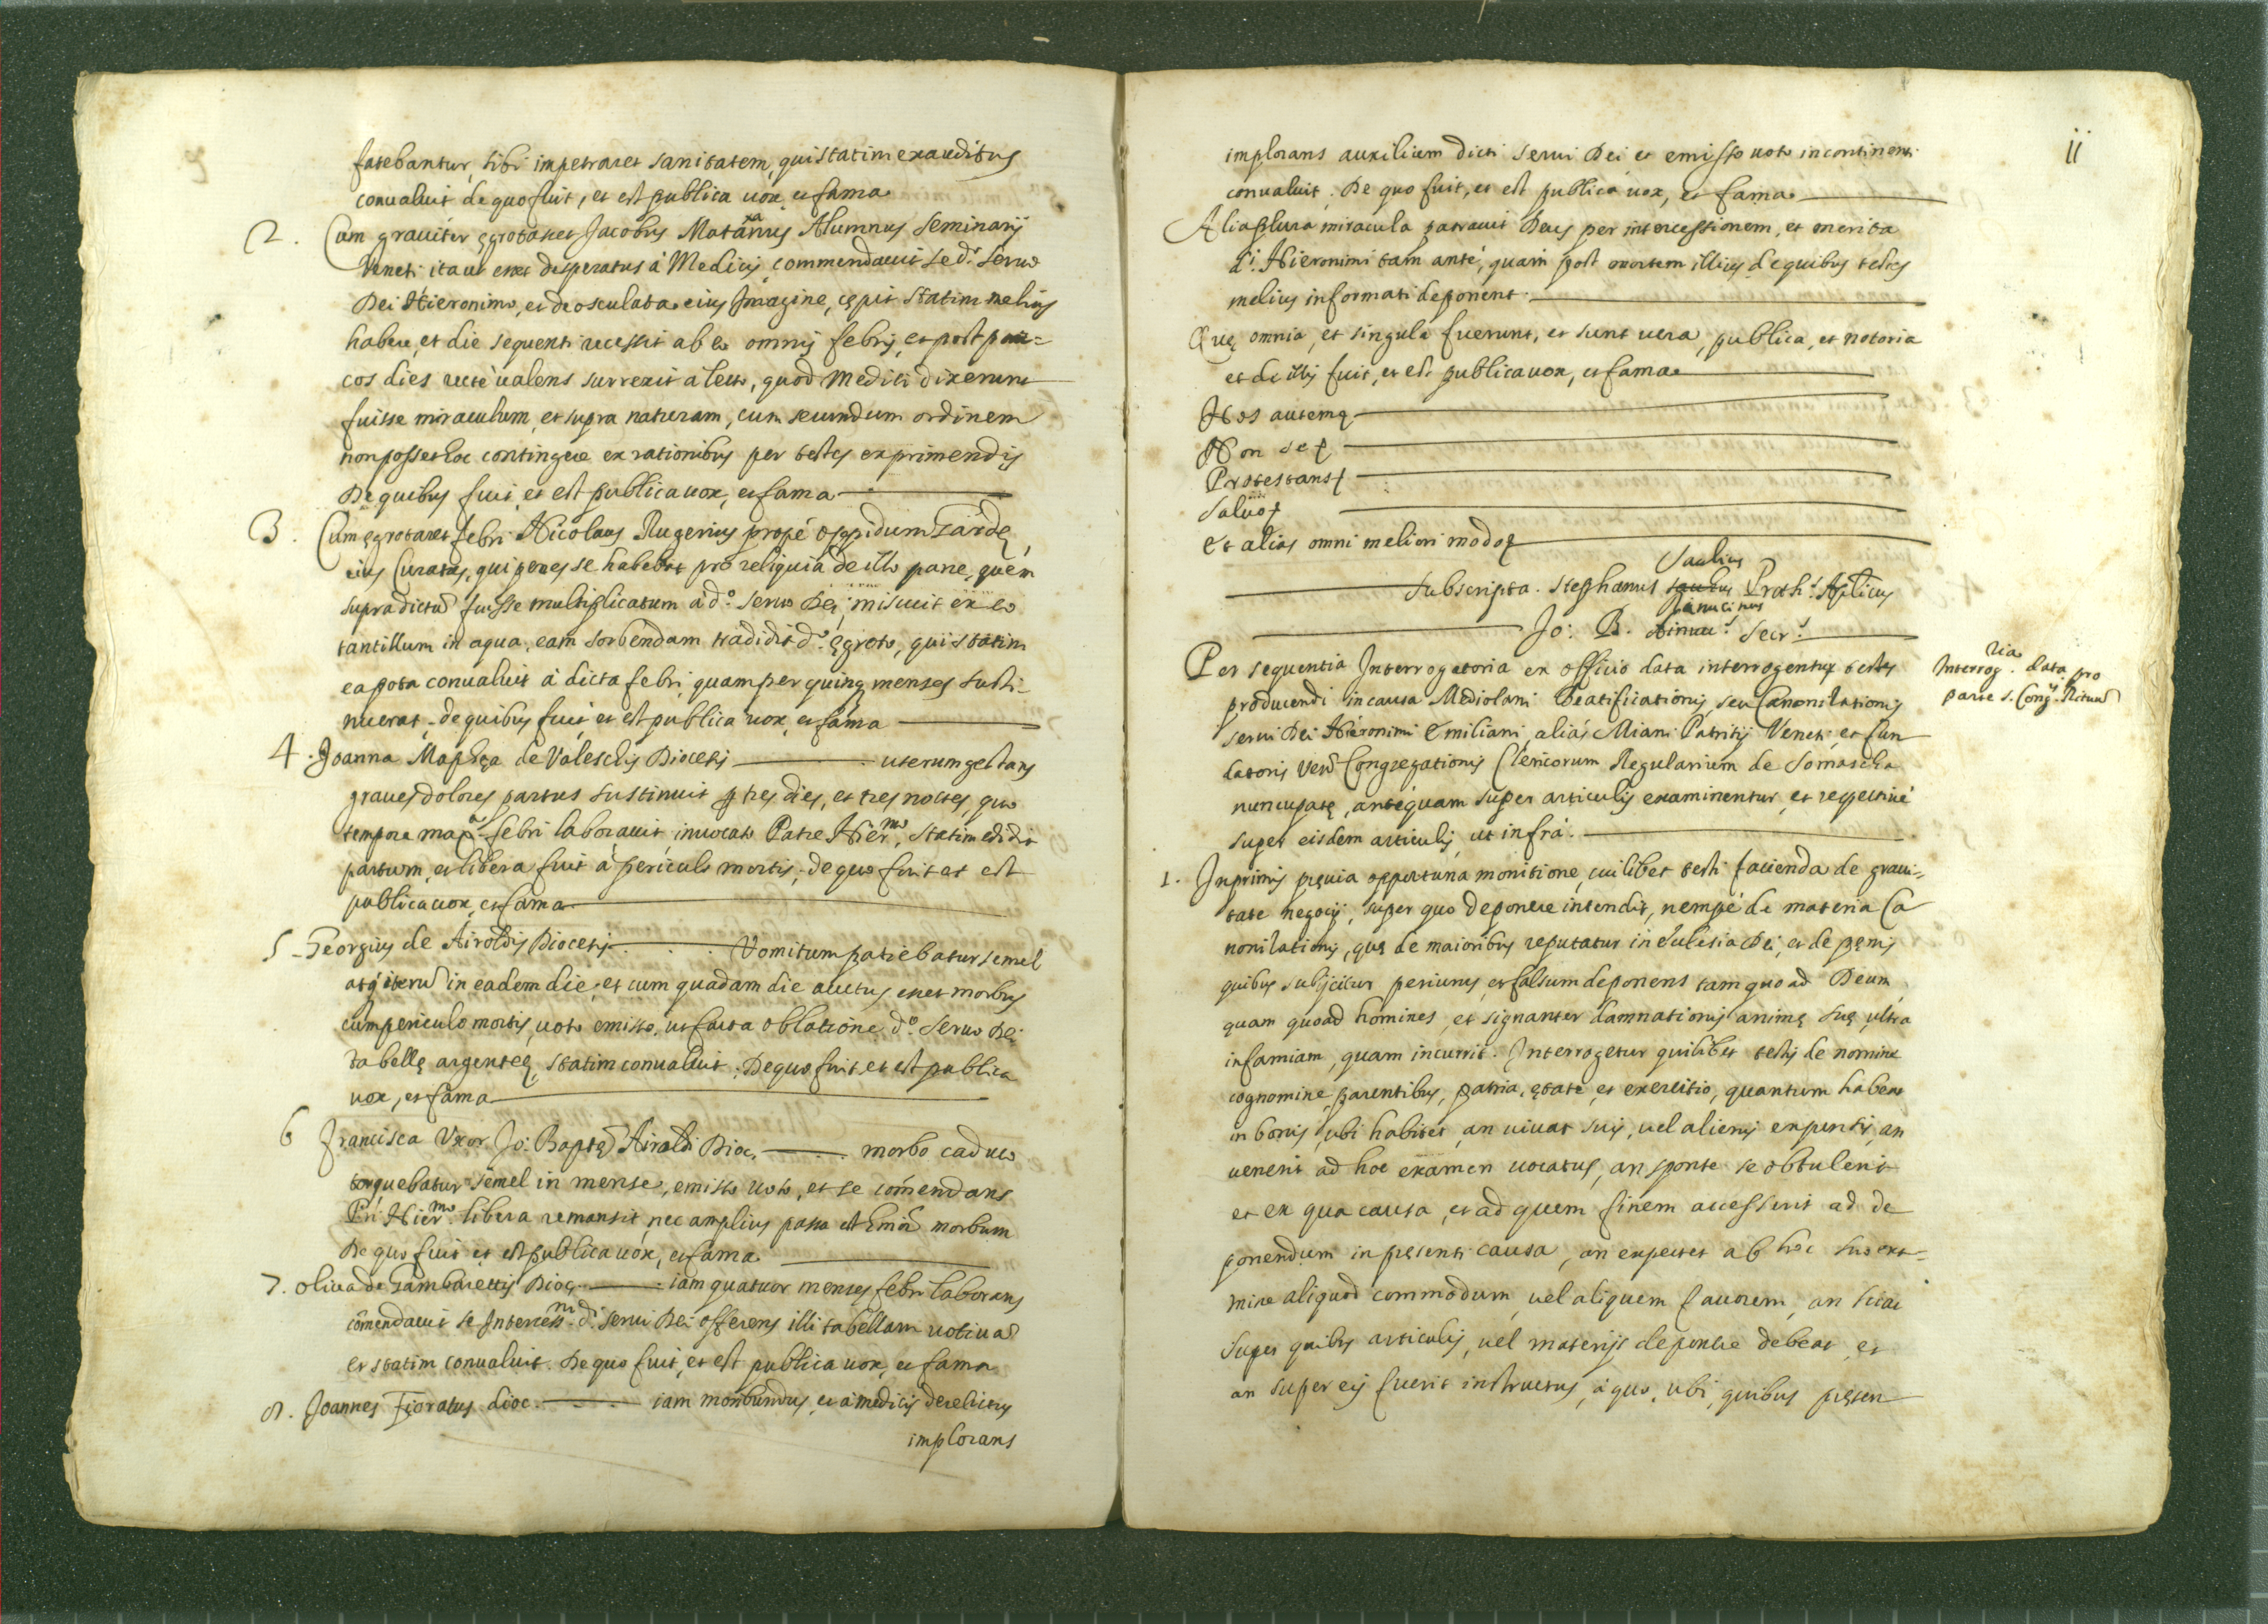 fatebantur, sibi impetraret sanitatem, qui statim exauditus
conualuit de quo fuit, et est publica uox, et fama
2. Cum grauitèr ęgrotaret Jacobus Alumnus Seminarij
Veneti ita ut esset desperatus à Medicis commendauit se d.º seruo
Dei Hieronimo, et deosculata eius Imagine, cępit statim melius
habere, et die sequenti recessit ab eo omnis febris, et post pau=
cos dies rectè ualens surrexit a lecto, quod Medici dixerunt
fuisse miraculum, et supra naturam, cum secundum ordinem
non posset hoc contingere ex rationibus per testes exprimendis
De quibus fuit, et est publica uox, et fama
3. Cum ęgrotaret febri Nicolaus Rugerius propè oppidum Gardę,
eius Curatus, qui penes se habebat pro reliquia de illo pane, quem
supradictũ fuisse multiplicatum a d.º seruo Dei, miscuit ex eo
tantillum in aqua, eam sorbendam tradidit d.º ęgroto, qui statim
ea pota conualuit à dicta febri, quam per quinq menses susti=
nuerat, de quibus fuit, et est publica uox, et fama
4. Joanna Maphęa de Valeschis Diocesis uterum gestans
graues dolores partus sustinuit p tres dies, et tres noctes, quo
tempore max.ª febri laborauit, inuocato Patre Hier.mo, statim edidit
partum, et libera fuit à periculo mortis, de quo fuit et est
publica uox, et fama
5. Georgius de Airoldis Diocesis Vomitum patiebatur semel
atq iterũ in eadem die, et cum quadam die auctus esset morbus
cum periculo mortis, uoto emisso, ut facta oblatione d.º seruo Dei
tabellę argenteę, statim conualuit. De quo fuit et est publica
uox, et fama
6 Francisca Vxor Jo: Baptę Airoldi Dioc. morbo caduco
torquebatur semel in mense, emisso uoto, et se comẽndans
Pri Hier.mo libera remansit, nec amplius passa est morbum
De quo fuit et est publica uox, et fama
7. Oliua de Gambarettis Dioc. iam quatuor menses febri laborans
com̃endauit se Interces.ni d.i serui Dei offerens illi tabellam uotiuã
et statim conualuit. De quo fuit, et est publica uox, et fama
8. Joannes Fioratus dioc. iam moribundus, et a medicis derelictus
implorans
ii
implorans auxilium dicti serui Dei et emisso uoto incontinenti
conualuit. De quo fuit, et est publica uox, et fama
Alia plura miracula patrauit Deus per intercessionem, et merita
d.i Hieronimi tam antè, quam post mortem illius de quibus testes
melius informati deponent
Quę omnia, et singula fuerunt, et sunt uera, publica, et notoria
et de illis fuit, et est publica uox, et fama
Hos autem
Non se
Protestans
Saluo
Et alias omni meliori modo
Subscripta. Stephanus Saulius Proth.s Aplicus
Jo: B. Secr.s
Per sequentia Interrogatoria ex officio data interrogentur testes
producendi in causa Mediolani Beatificationis, seu Canonizationis
serui Dei Hieronimi Emiliani, aliàs Miani Patritij Veneti, et fun
datoris Verũ Congregationis Clericorum Regularium de Somascha
nuncupatę, antequam super articulis examinentur, et respectiuè
super eisdem articulis, ut infrà.
Interrog.ria data pro
parte S. Cong.is Rituũ
1. Inprimis pręuia opportuna monitione, cuilibet testi facienda de graui=
tate negocij, super quo deponere intendit, nempè de materia Ca
nonizationis, quę de maioribus reputatur in Eclesia Dei, et de pęnis
quibus subijcitur periurus, et falsum deponens tam quoad Deum,
quam quoad homines, et signanter damnationis animę suę ultra
infamiam, quam incurrit. Interrogetur quilibet testis de nomine
cognomine, parentibus, patria, ętate, et exercitio, quantum habeat
in bonis, ubi habitet, an uiuat suis, uel alienis expensis, an
uenerit ad hoc examen uocatus, an sponte se obtulerit
et ex qua causa, et ad quem finem accesserit ad de
ponendum in pręsenti causa, an expectet ab hoc suo exa=
mine aliquod commodum, uel aliquem fauorem, an sciat
super quibus articulis, uel materijs deponere debeat, et
an super eis fuerit instructus, à quo, ubi, quibus pręsen